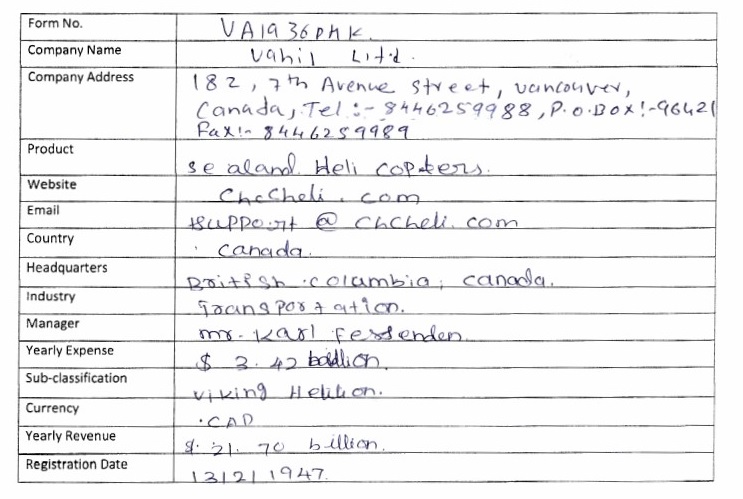 Form No. VA1936PHK.
Company Name Vahil Litd.
Company Address 182, 7th Avenue Street, Vancouver,
Canada, Tel:- 8446259988, P.O.BOX:-96421
Fax:- 8446259989
Product Sealand Helicopters.
Website ChcCheli.com
Email support@chcheli.com
Country Canada.
Headquarters British Columbia, Canada.
Industry Transportation.
Manager Mr. Karl Fessenden.
Yearly Expense $ 3.42 billion.
Sub-classification Viking
Currency CAD
Yearly Revenue $. 21.70 billion.
Registration Date 13|2|1947.